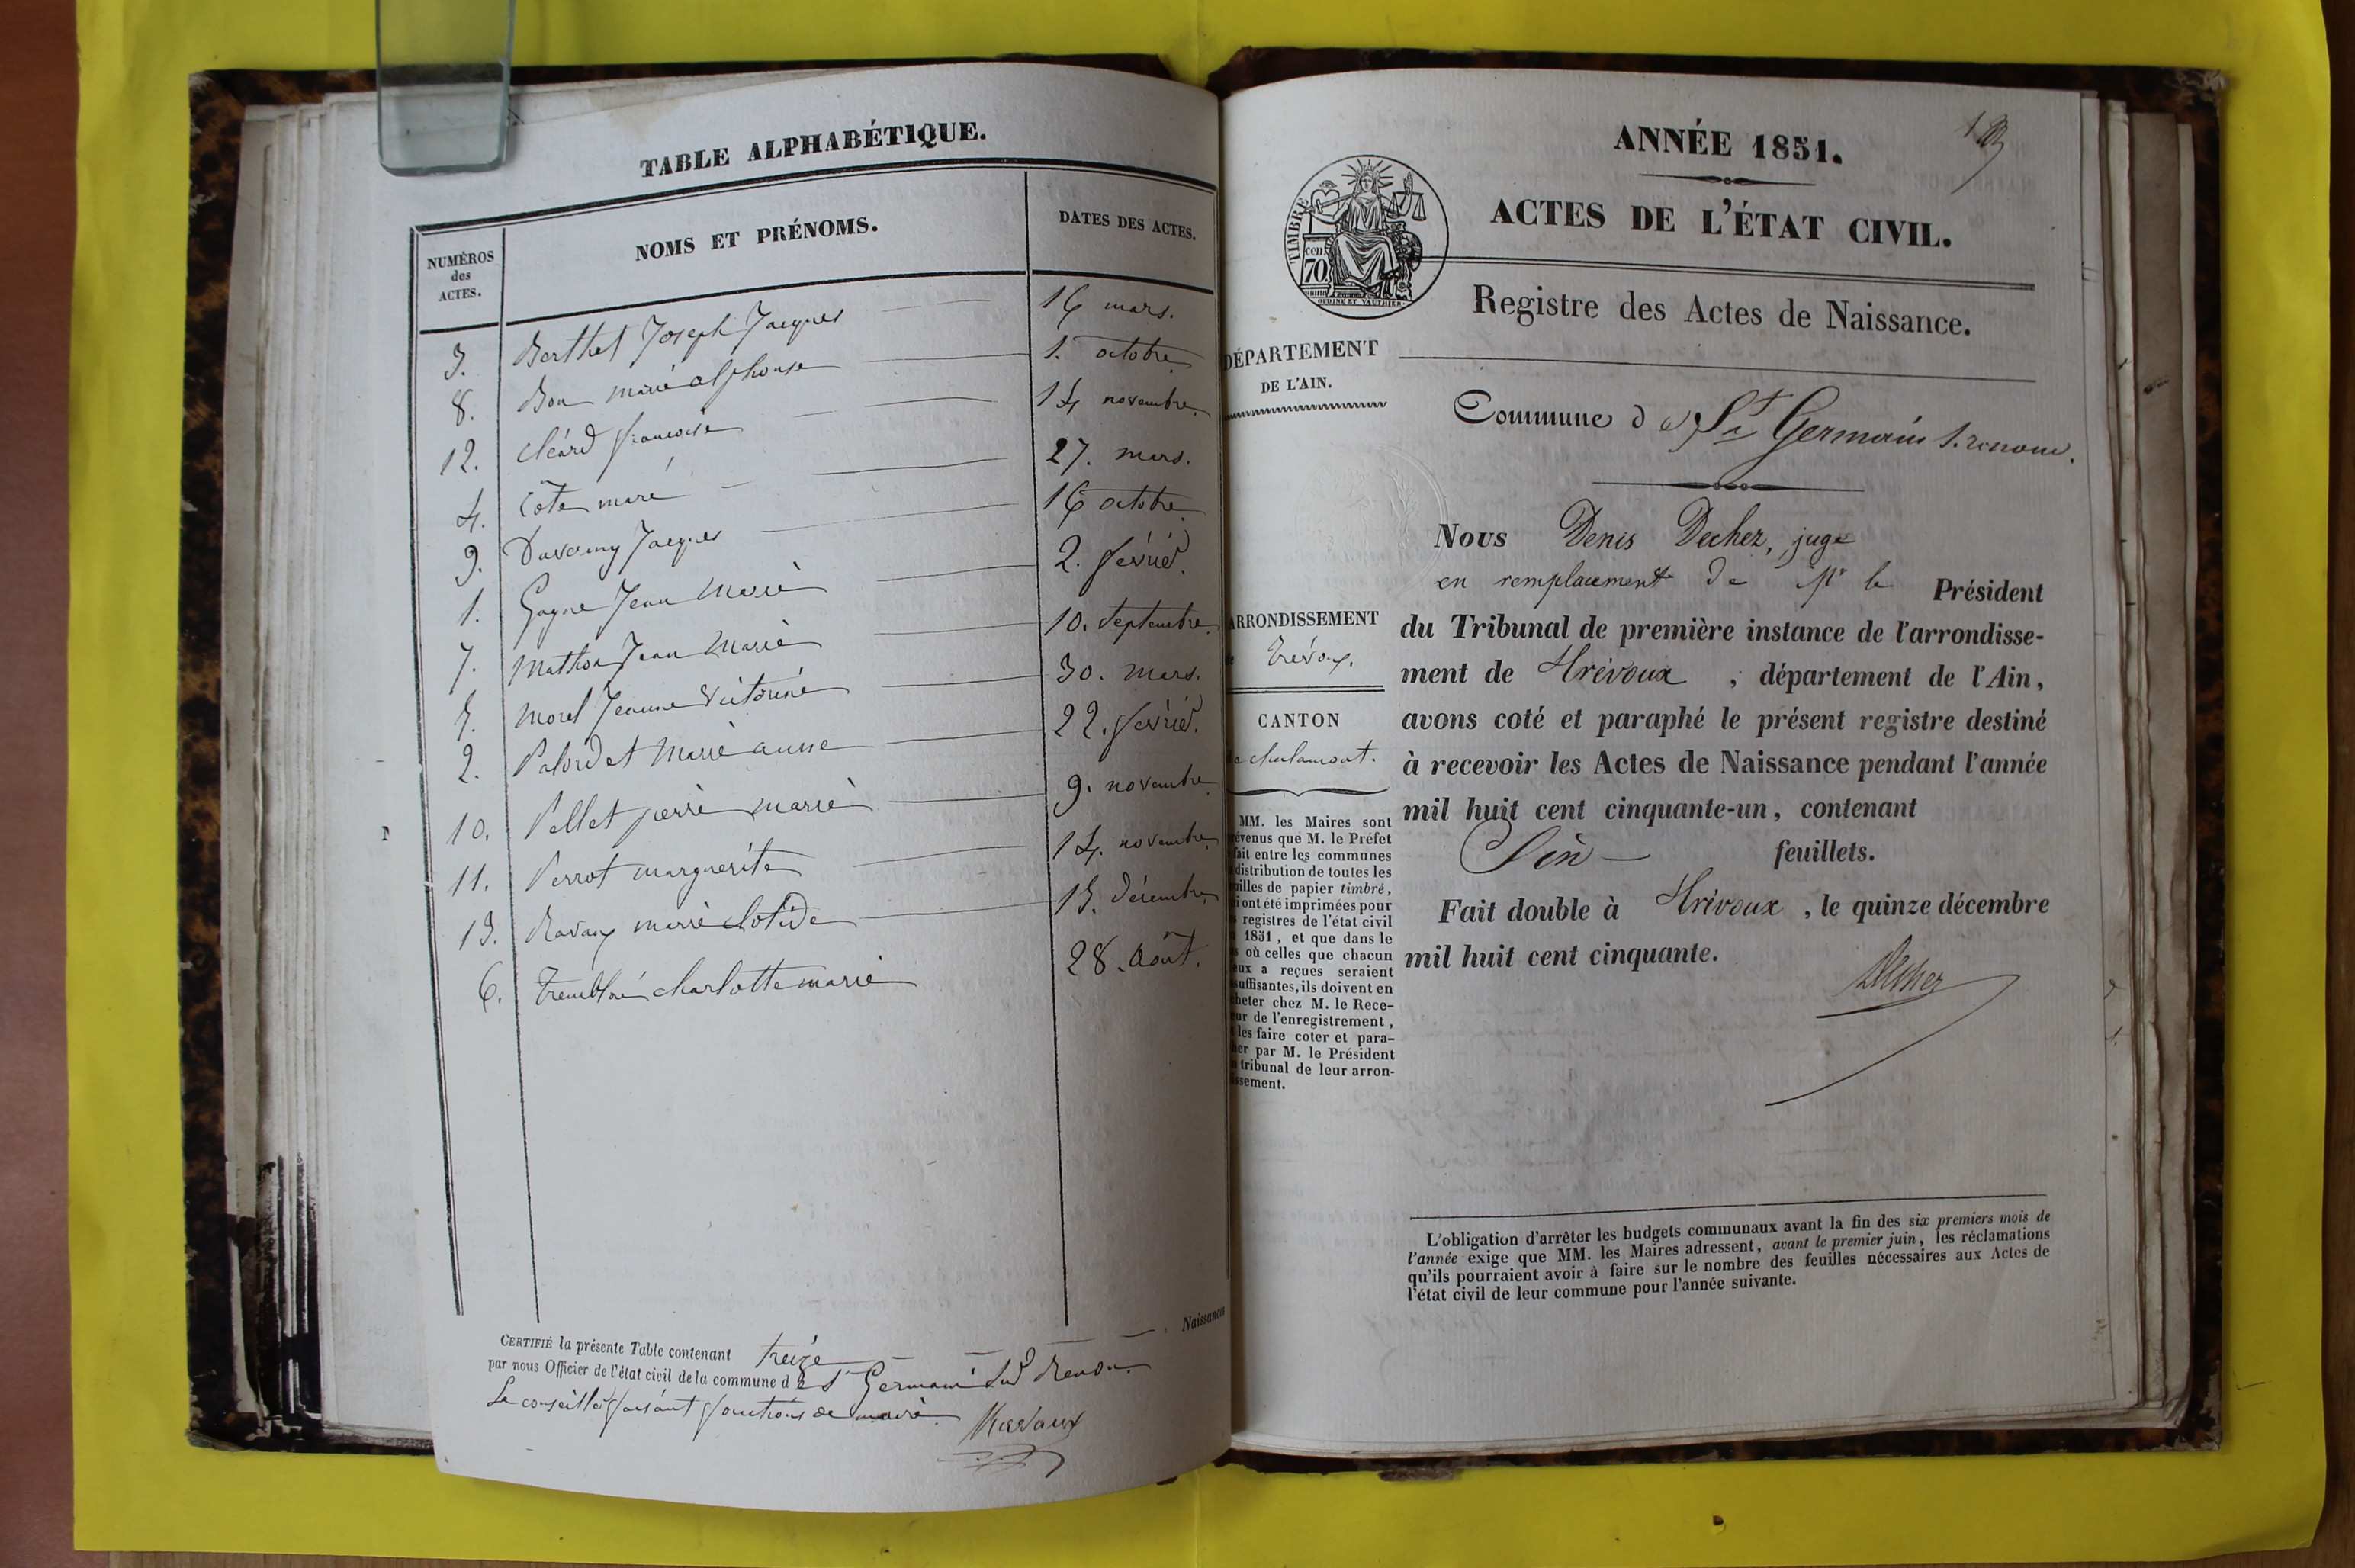 TABLE ALPHABÉTIQUE.
NUMÉROS
des
ACTES.
NOMS ET PRÉNOMS.
DATES DES ACTES.
3. Berthet Joseph Jacques 16 mars.
8. Bon marie alphonse 1. octobre
12. cléard francoise 14 novembre
4. Côte marie 27. mars.
9. Jacques 16 octobre
1. Gagne Jean Marie 2. février.
7. Mathon Jean Marie 10. Septembre
5. Morel Jeanne Victorine 30. mars.
2. Marie anne 22. février.
10. Pellet pierre marie 9. novembre
11. Perrot marguerite 14. novembre
13. Ravaux marie Clotide 15. décembre
6. charlotte marie 28. Août.
Naissances
CERTIFIÉ la présente Table contenant treize
par nous Officier de l'état civil de la commune d e St Germain sur Renon
Le conseiller faisant fonctions de maire. Ravaux
ANNÉE 1851.
ACTES DE L'ÉTAT CIVIL.
TIMBRE
cen
70
Registre des Actes de Naissance.
DÉPARTEMENT
DE L'AIN.
Commune d e St Germain s. renom.
Nous Denis Dechez, juge
en remplacement de Mr le Président
du Tribunal de première instance de l'arrondisse-
ment de Trévoux , département de l'Ain,
avons coté et paraphé le présent registre destiné
à recevoir les Actes de Naissance pendant l'année
mil huit cent cinquante-un, contenant
feuillets.
Fait double à Trévoux , le quinze décembre
mil huit cent cinquante.
Dechez
ARRONDISSEMENT
Trévoux.
CANTON
de chalamont.
MM. les Maires sont
prévenus que M. le Préfet
fait entre les communes
distribution de toutes les
feuilles de papier timbré,
qui ont été imprimées pour
registres de l'état civil
1851, et que dans le
où celles que chacun
eux a reçues seraient
insuffisantes, ils doivent en
acheter chez M. le Rece-
veur de l'enregistrement,
les faire coter et para-
pher par M. le Président
tribunal de leur arron-
dissement.
L'obligation d'arrêter les budgets communaux avant la fin des six premiers mois de
l'année exige que MM. les Maires adressent, avant le premier juin, les réclamations
qu'ils pourraient avoir à faire sur le nombre des feuilles nécessaires aux Actes de
l'état civil de leur commune pour l'année suivante.